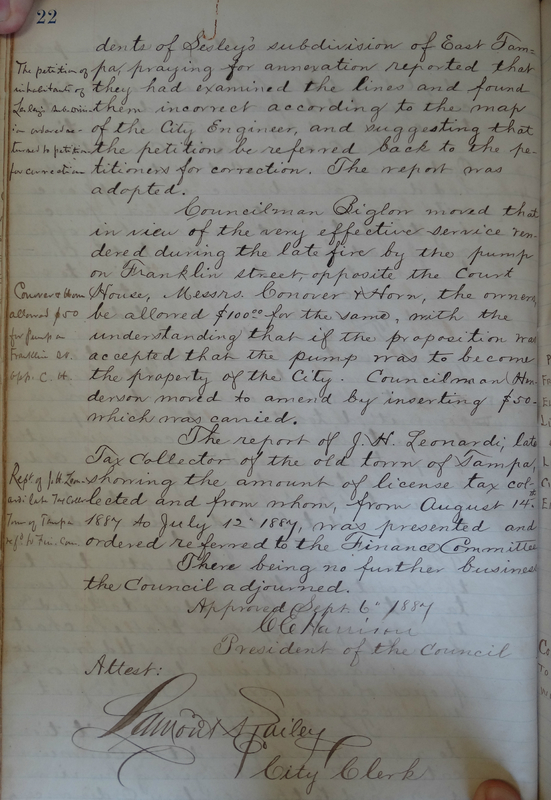 22
dents of Lesley's subdivision of East Tam-
pa, praying for annexation reported that
they had examined the lines and found
them incorrect according to the map
of the City Engineer, and suggesting that
the petition be referred back to the pe-
titioners for correction. The report was
adopted.
The petition of
inhabitants of
for correction
Councilman Biglow moved that
in view of the very effective service ren-
dered during the late fire by the pump
on Franklin street, opposite the Court
House, Messrs. Conover & Horn, the owners,
be allowed $100.00 for the same, with the
understanding that if the proposition was
accepted that the pump was to become
the property of the City. Councilman Hen-
derson moved to amend by inserting $50-
which was carried.
Conover & Horn
allowed $50
for Pump on
Franklin St.
opp. C. H.
The report of J. H. Leonardi, late
Tax Collector of the old town of Tampa,
showing the amount of license tax col-
lected and from whom, from August 14th
1887 to July 12" 1887, was presented and
ordered referred to the Finance Committee
Rept. of J. H. Leon-
ardi late Tax Coll
Town of Tampa
ref'd to Fin. Com
There being no further business
the Council adjourned.
Approved Sept. 6" 1887
C E Harrison
President of the Council
Attest:
Lamont Bailey
City Clerk